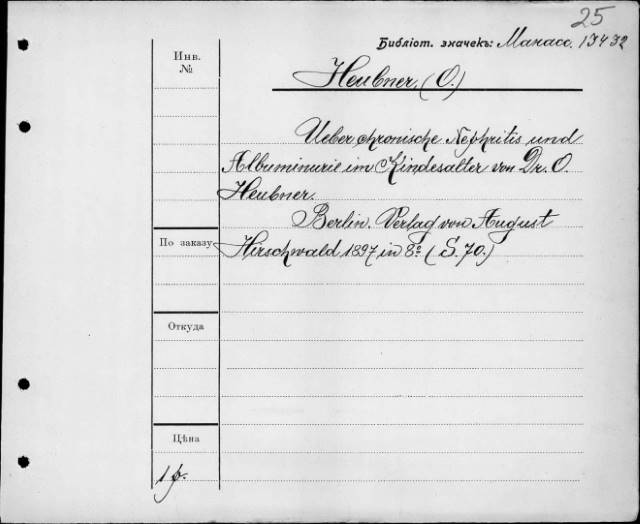 25
Библіот. значекъ: Манасс. 13432
Инв.
№
Heubner, (O.)
Ueber chronische Nephritis und
Albuminurie im Kindesalter von Dr. O.
Heubner.
Berlin. Verlag von August
По заказу
Hirschwald 1897 in 8º (S. 70.)
Откуда
Цѣна
1 р.